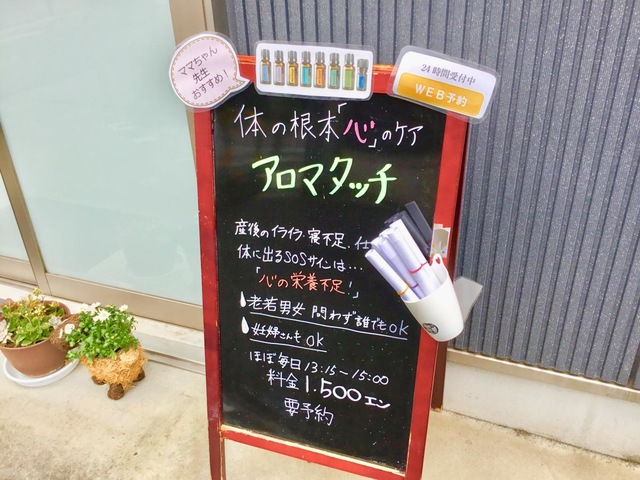 ママちゃん
先生
おすすめ!
24時間受付中
WEB予約
体の根本「心」のケア
アロマタッチ
産後のイライラ・寝不足、仕
体に出るSOSサインは…
「心の栄養不足!」
老若男女 問わず誰でもok
妊婦さんも ok
ほぼ毎日 13:15-15:00
料金 1.500エン
要予約